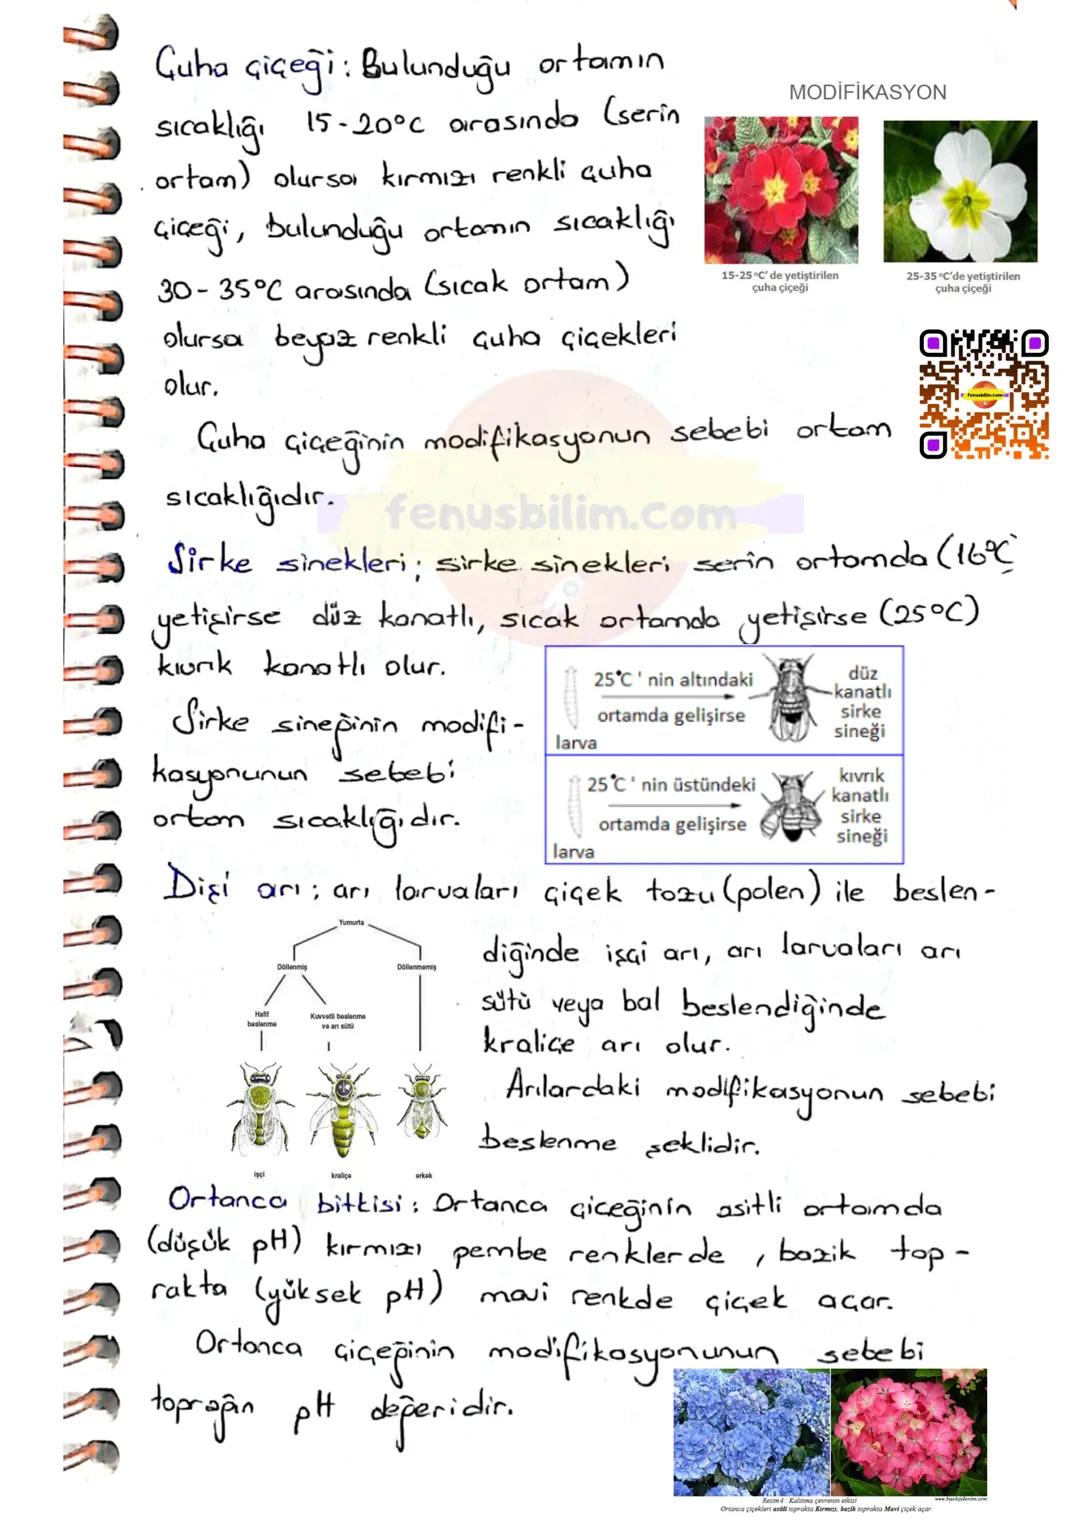 Çuha çiçeği: Bulunduğu ortamın
sıcaklığı 15-20°C arasında (serin
ortam) olursa kırmızı renkli çuha
çiçeği, bulunduğu ortamın sıcaklığı
30-35°C arasında (sıcak ortam)
olursa beyaz renkli çuha çiçekleri
olur.
MODİFİKASYON
15-25 °C'de yetiştirilen
çuha çiçeği
25-35 °C'de yetiştirilen
çuha çiçeği
fenusbilim.com
Çuha çiçeğinin modifikasyonun sebebi ortam
sıcaklığıdır.
fenusbilim.com
Sirke sinekleri; sirke sinekleri serin ortamda (16°C
yetişirse düz kanatlı, sıcak ortamda yetişirse (25°C)
kıvrık kanatlı olur.
Sirke sineğinin modifi-
kasyonunun sebebi
ortam sıcaklığıdır.
25°C' nin altındaki
ortamda gelişirse
larva
düz
kanatlı
sirke
sineği
25°C' nin üstündeki
ortamda gelişirse
larva
kıvrık
kanatlı
sirke
sineği
Dişi arı; arı larvaları çiçek tozu (polen) ile beslen-
diğinde işçi arı, arı larvaları arı
sütü veya bal beslendiğinde
kraliçe arı olur.
Arılardaki modifikasyonun sebebi
beslenme şeklidir.
Yumurta
Döllenmiş
Döllenmemiş
Hafif
beslenme
Kuvvetli beslenme
ve arı sütü
işçi
kraliçe
erkek
Ortanca bitkisi: Ortanca çiçeğinin asitli ortamda
(düşük pH) kırmızı pembe renklerde, bazik top-
rakta (yüksek pH) mavi renkde çiçek açar.
Ortanca çiçeğinin modifikasyonunun sebebi
toprağın pH değeridir.
Resim 4: Kalıtıma çevrenin etkisi
www.biyolojidersim.com
Ortanca çiçekleri asitli toprakta Kırmızı, bazik toprakta Mavi çiçek açar.